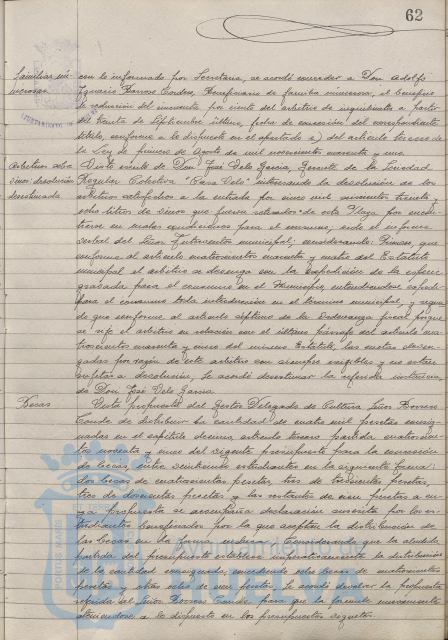 62
familias nu-
merosas
con lo informado por Secretaría, se acordó conceder a Don Adolfo
Ignacio Barroso Cordero, Beneficiario de familia numerosa, el beneficio
de reducción del cincuenta por ciento del arbitrio de inquilinato a partir
del treinta de Septiembre último, fecha de concesión del correspondiente
título, conforme a lo dispuesto en el apartado a) del artículo tercero de
la Ley de primero de Agosto de mil novecientos cuarenta y uno.
Arbitrios sobre
vinos: devolución
desestimada
Visto escrito de Don José Vela García, Gerente de la Sociedad
Regular Colectiva "Casa Vela" interesando la devolución de los
arbitrios satisfechos a la entrada por cinco mil seiscientos treinta y
ocho litros de vinos que fueron retirados de esta Plaza por encon-
trarse en malas condiciones para el consumo, visto el informe
verbal del Señor Interventor municipal; considerando: Primero, que
conforme al artículo cuatrocientos cuarenta y cuatro del Estatuto
municipal el arbitrio se devenga con la expedición de la especie
gravada para el consumo en el Municipio, entendiéndose expedi-
da para el consumo toda introducción en el término municipal, y segun-
do que conforme al artículo séptimo de la Ordenanza fiscal porque
se rige el arbitrio en relación con el último párrafo del artículo cua-
trocientos cuarenta y cinco del mismo Estatuto, las cuotas deven-
gadas por razón de este arbitrio son siempre exigibles y no están
sujetas a devolución, se acordó desestimar la referida instancia
de Don José Vela García.
Becas
Vista propuesta del Gestor Delegado de Cultura Señor Borrero
Conde de distribuir la cantidad de cuatro mil pesetas consig-
nadas en el capítulo décimo, artículo tercero partida cuatrocien-
tos noventa y cinco del vigente presupuesto para la concesión
de becas, entre veintinueve estudiantes en la siguiente forma:
dos becas de cuatrocientas pesetas, tres de trescientas pesetas,
tres de doscientas pesetas y las restantes de cien pesetas a cu-
ya propuesta se acompaña declaración suscrita por los es-
tudiantes beneficiados por la que aceptan la distribución de
las becas en la forma indicada. Considerando que la aludida
partida del presupuesto establece imperativamente la distribución
de la cantidad consignada, concediendo ocho becas de cuatrocientas
pesetas y otras ocho de cien pesetas, se acordó devolver la propuesta
referida del Señor Borrero Conde para que la formule nuevamente
ateniéndose a lo dispuesto en los presupuestos vigentes.